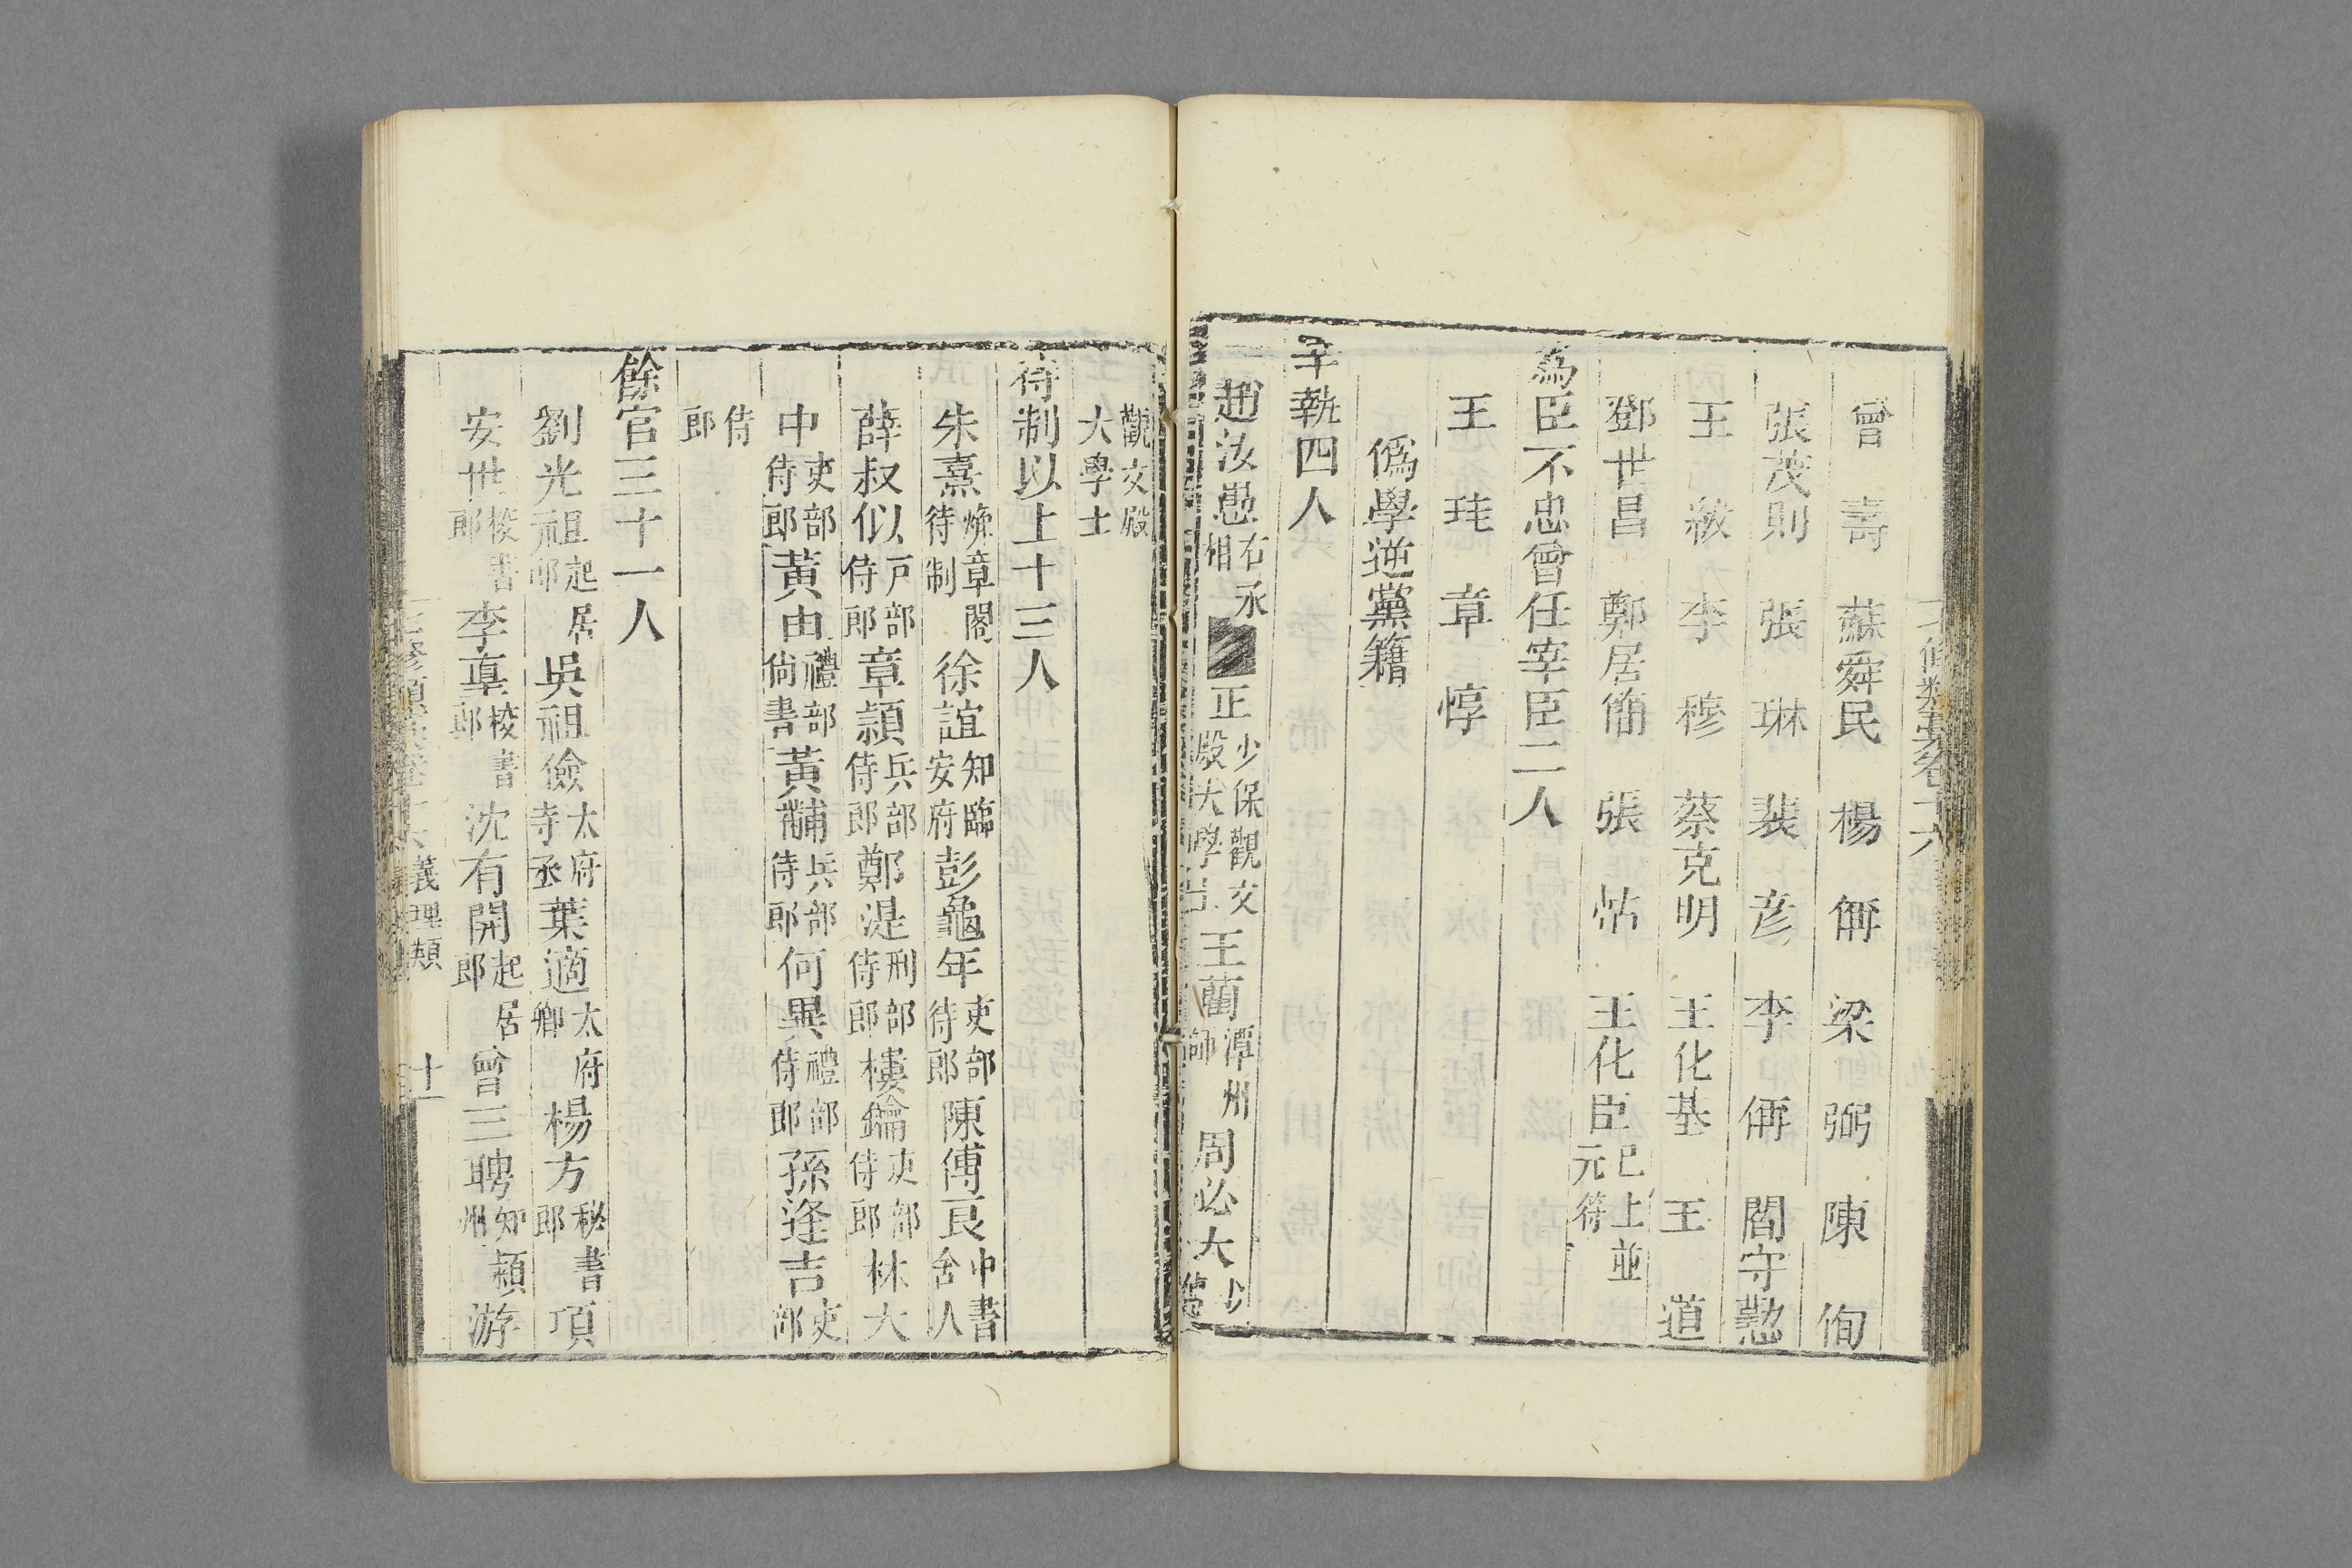 曾　壽　蘇舜民　楊　偁　梁　弼　陳　恂
張茂則　張　琳　裴　彦　李　偁　閻守懃
王　紱　李　穆　蔡克明　王化基　王　道
鄧世昌　鄭居簡　張　祐　王化臣已上並元符
為臣不忠曾任宰臣二人
王　珪　章　惇
偽學逆黨籍
宰執四人
趙汝愚右丞相　正少保觀文殿大學士王藺潭州帥周必大少
觀文殿大學士
待制以上十三人
朱熹煥章閣待制徐誼知臨安府彭龜年吏部侍郎陳傅良中書舍人
薛叔似戸部侍郎章頴兵部侍郎鄭湜刑部侍郎樓鑰吏部侍郎林大
中吏部侍郎黃由禮部尚書黃黼兵部侍郎何異禮部侍郎孫逢吉吏部
侍郎
餘官三十一人
劉光祖起居郎吳祖儉太府寺丞葉適太府卿楊方秘書郎項
安世校書郎李𡌴校書郎沈有開起居郎曾三聘知頴州游
七修類藁卷十六　義理類　十一